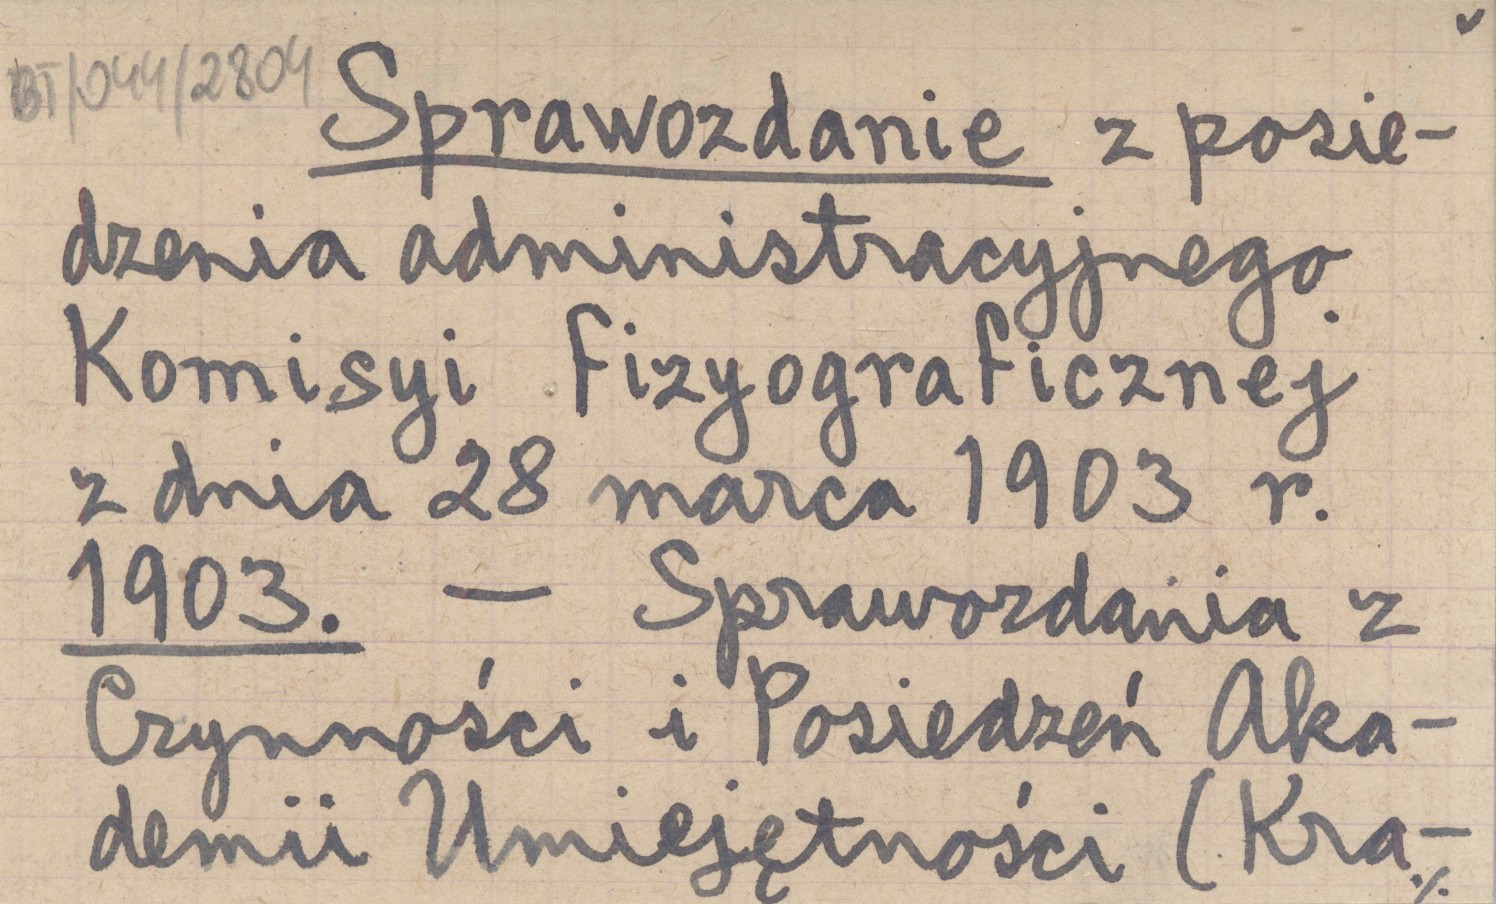 BT/044/2804
Sprawozdanie z posie-
dzenia administracyjnego
Komisyi fizyograficznej
z dnia 28 marca 1903 r.
1903. — Sprawozdania z
Czynności i Posiedzeń Aka-
demii Umiejętności (Kra-
./.